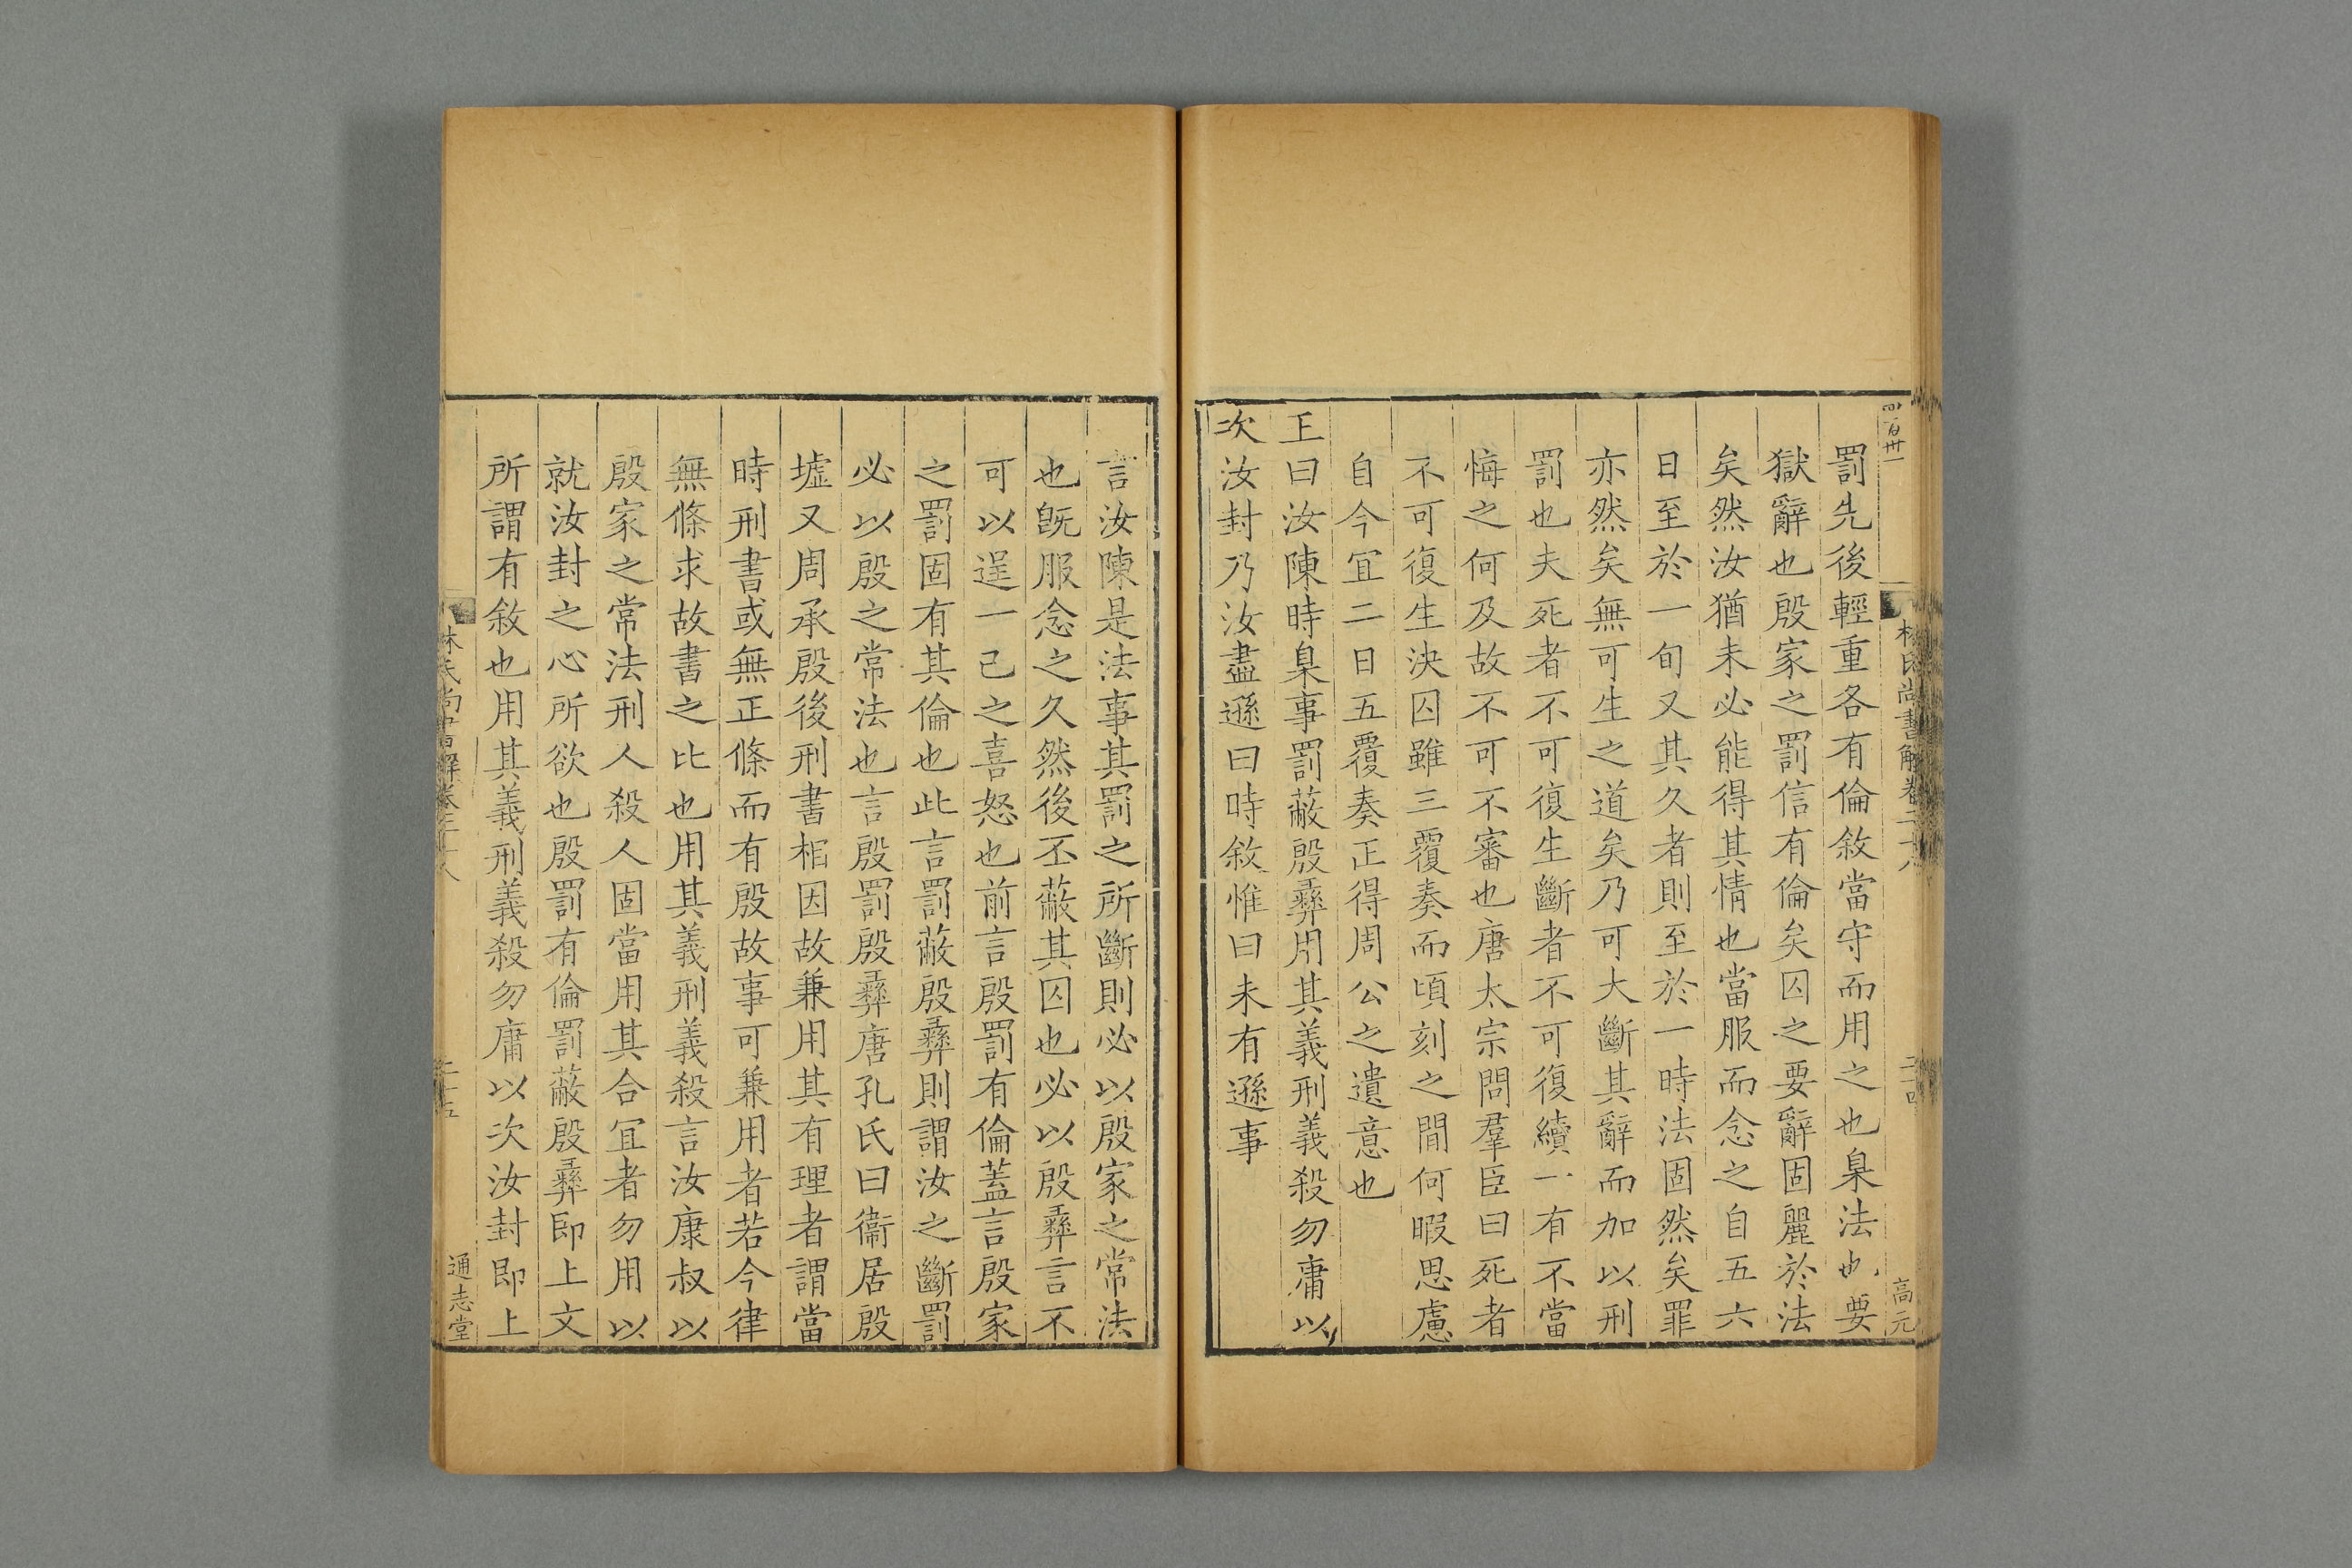 罰先後輕重各有倫敘當守而用之也臬法也要
獄辭也殷家之罰信有倫矣囚之要辭固麗於法
矣然汝猶未必能得其情也當服而念之自五六
日至於一旬又其久者則至於一時法固然矣罪
亦然矣無可生之道矣乃可大斷其辭而加以刑
罰也夫死者不可復生斷者不可復續一有不當
悔之何及故不可不審也唐太宗問羣臣曰死者
不可復生決囚雖三覆奏而頃刻之間何暇思慮
自今宜二日五覆奏正得周公之遺意也
王曰汝陳時臬事罰蔽殷彝用其義刑義殺勿庸以
次汝封乃汝盡遜曰時敘惟曰未有遜事
高元
言汝陳是法事其罰之所斷則必以殷家之常法
也旣服念之久然後丕蔽其囚也必以殷彝言不
可以逞一己之喜怒也前言殷罰有倫蓋言殷家
之罰固有其倫也此言罰蔽殷彝則謂汝之斷罰
必以殷之常法也言殷罰殷彝唐孔氏曰衞居殷
墟又周承殷後刑書相因故兼用其有理者謂當
時刑書或無正條而有殷故事可兼用者若今律
無條求故書之比也用其義刑義殺言汝康叔以
殷家之常法刑人殺人固當用其合宜者勿用以
就汝封之心所欲也殷罰有倫罰蔽殷彝卽上文
所謂有敘也用其義刑義殺勿庸以次汝封卽上
通志堂